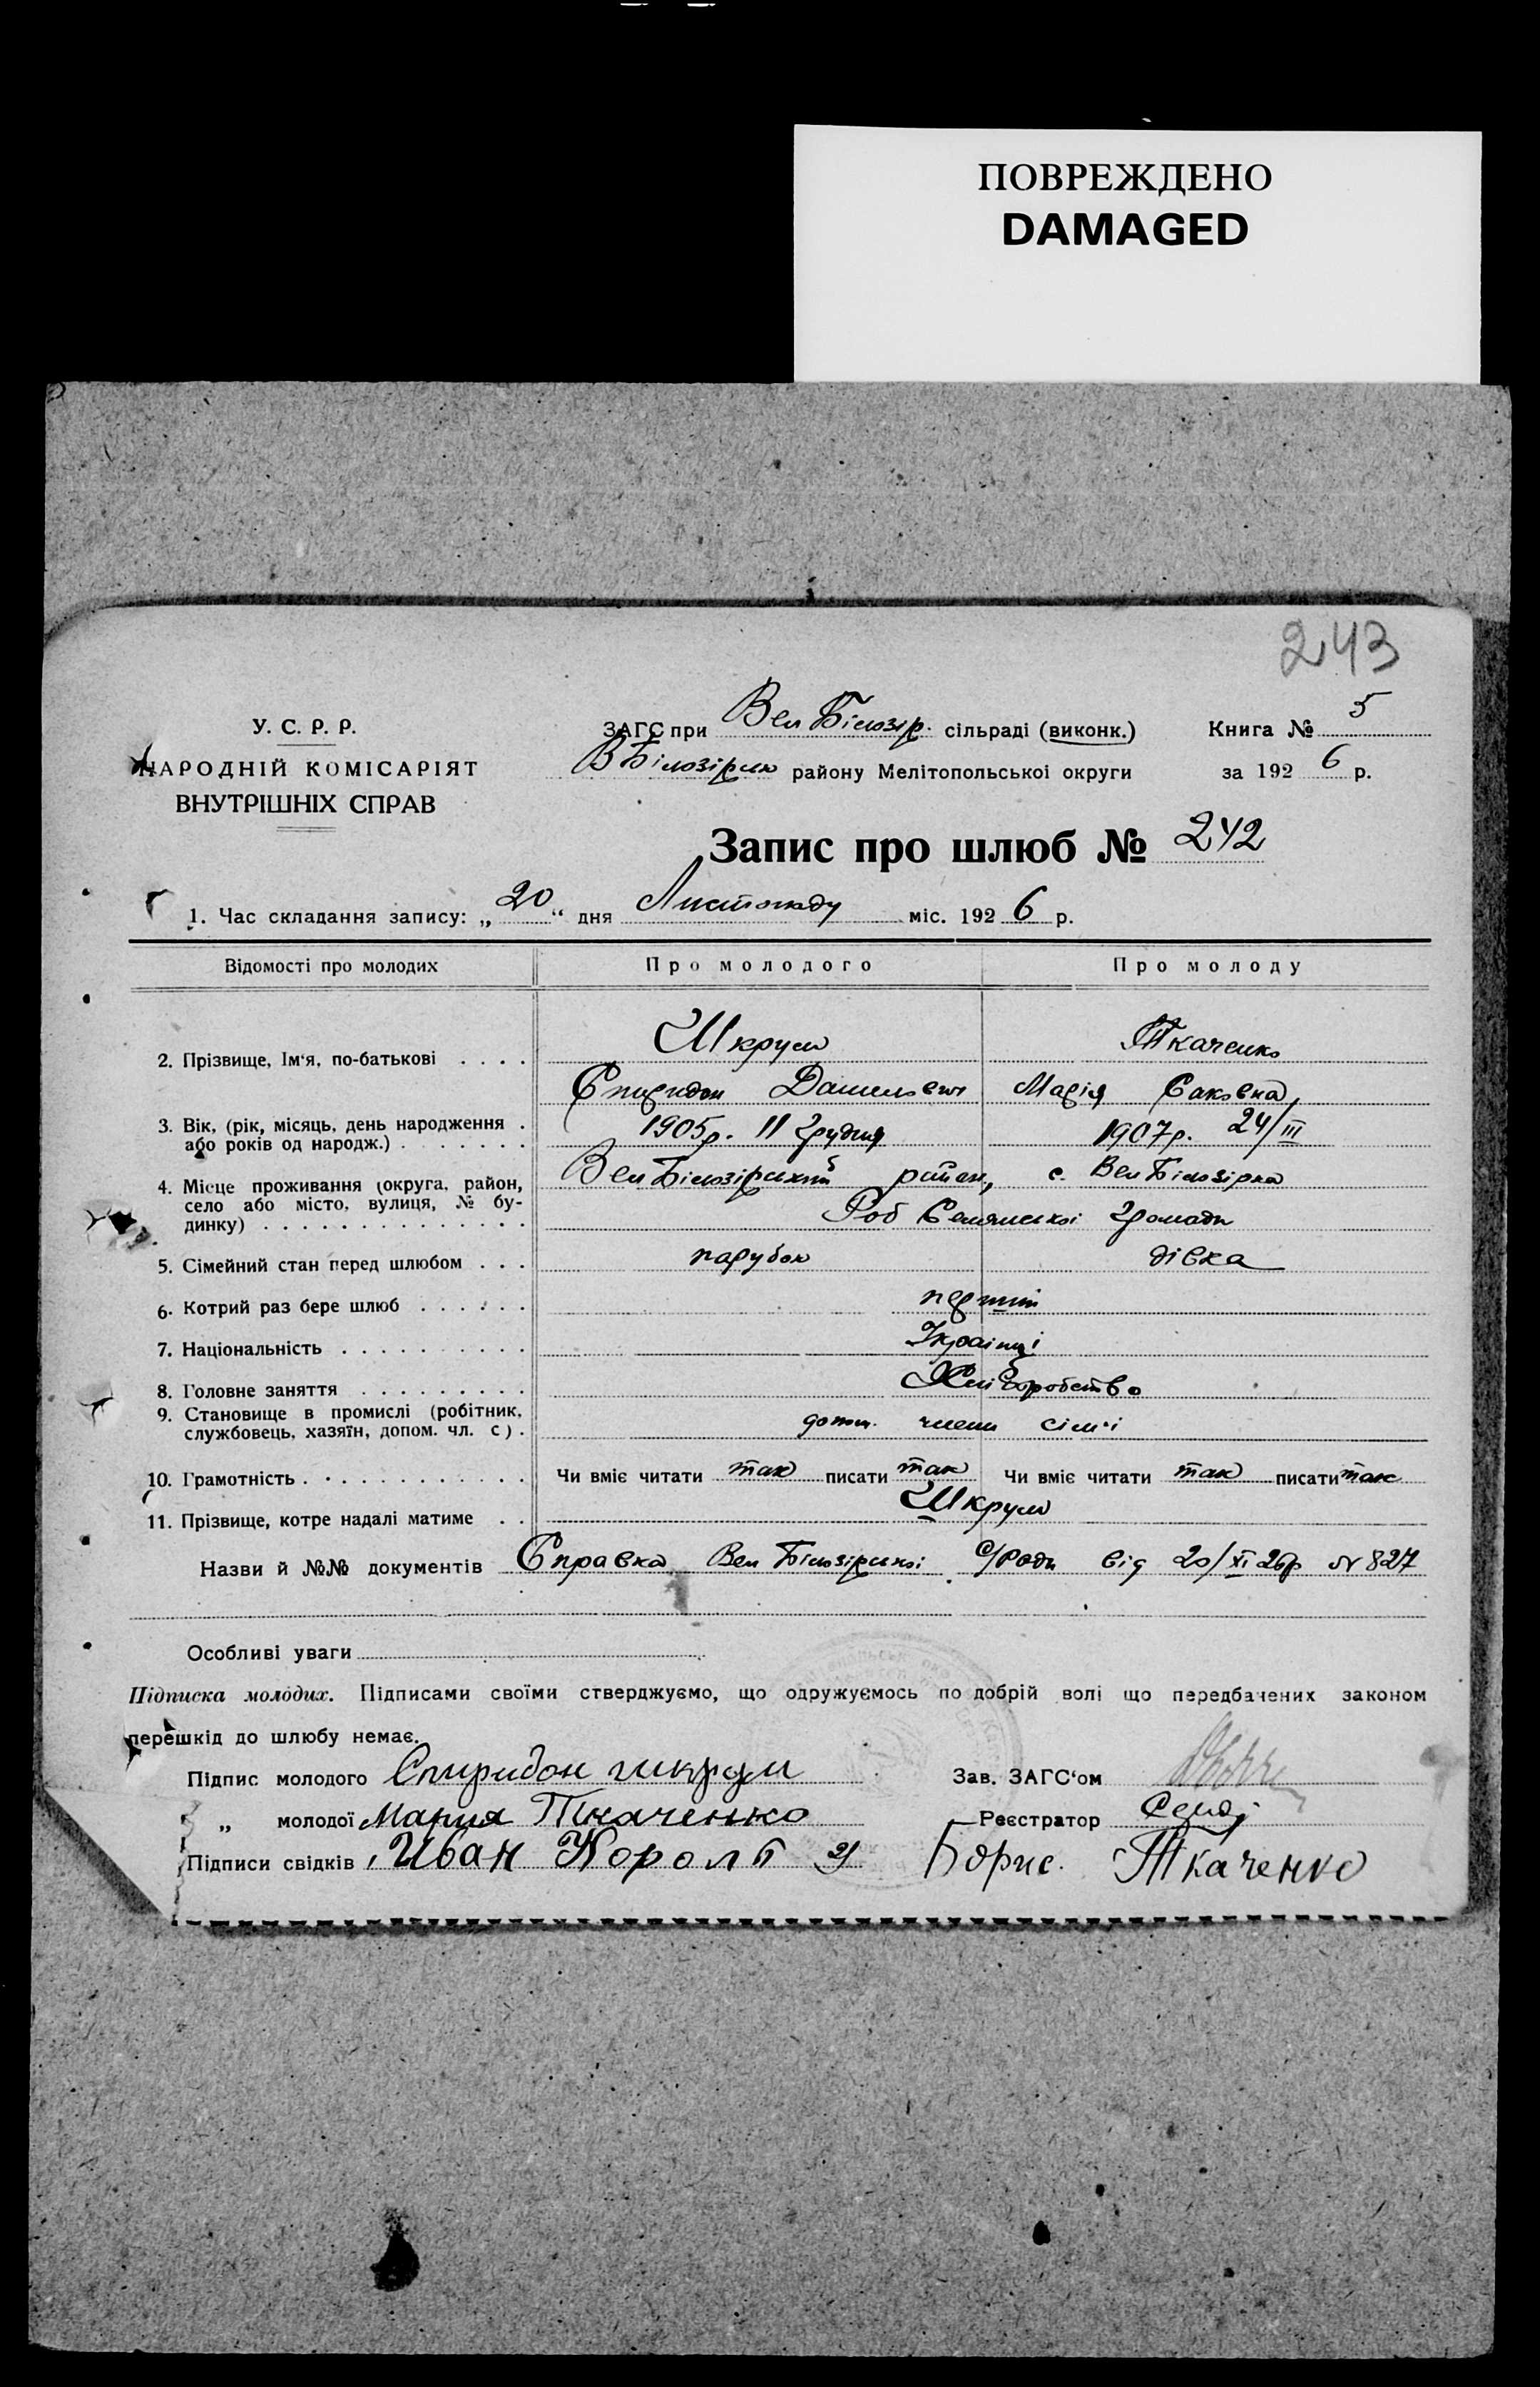 ПОВРЕЖДЕНО
DAMAGED
243
У. С. Р. Р.
НАРОДНІЙ КОМІСАРІЯТ
ВНУТРІШНІХ СПРАВ
ЗАГС при Вел Білозір. сільраді (виконк.) Книга № 5
В Білозірськ району Мелітопольської округи за 192 6 р.
Запис про шлюб № 242
1. Час складання запису: „ 20 “ дня Листопаду міс. 192 6 р.
Відомості про молодих Про молодого Про молоду
2. Прізвище, Ім‘я, по-батькові . . . . Шкрум Ткаченко
Спиридон Данилович Марія Саковна,
3. Вік, (рік, місяць, день народження . 1905р. 11 грудня 1907р. 24/III
або років од народж.) . . . . . . .
4. Місце проживання (округа, район, Вел Білозірский район, с. Вел Білозірка
село або місто, вулиця, № бу-
динку) . . . . . . . . . . . . . . Роб Селянської громади
5. Сімейний стан перед шлюбом . . . парубок дівка
6. Котрий раз бере шлюб . . . . . . перший
7. Національність . . . . . . . . . . Українці
8. Головне заняття . . . . . . . . . Хліборобство
9. Становище в промислі (робітник,
службовець, хазяїн, допом. чл. с) . допом. члени сім'ї
10. Грамотність . . . . . . . . . . . . Чи вміє читати так писати так Чи вміє читати так писати так
11. Прізвище, котре надалі матиме . . Шкрум
Назви й №№ документів Справка Вел Білозірської с/Ради від 20/XI 26р № 827
Особливі уваги
Підписка молодих. Підписами своїми стверджуємо, що одружуємось по добрій волі що передбачених законом
перешкід до шлюбу немає.
Підпис молодого Спиридон шкрум Зав. ЗАГС‘ом
„ молодої Мария Ткаченко Реєстратор
Підписи свідків 1, Иван Король 2) Борис. Ткаченко